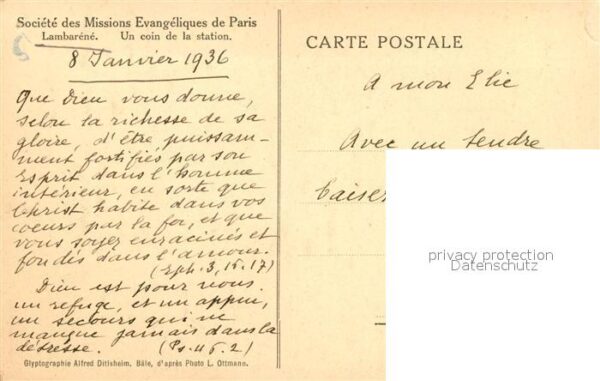 Société des Missions Evangéliques de Paris
Lambaréné. Un coin de la station.
8 Janvier 1936
Que Dieu vous donne,
selon la richesse de sa
gloire, d'être puissam-
ment fortifiés par son
Esprit dans l'homme
intérieur, en sorte que
Christ habite dans vos
coeurs par la foi, et que
vous soyez enracinés et
fondés dans l'amour.
(Eph. 3, 15.17)
Dieu est pour nous
un refuge, et un appui,
un secours qui ne
manque jamais dans la
détresse. (Ps. 46.2)
Glyptographie Alfred Ditisheim. Bâle, d'après Photo L. Ottmann.
CARTE POSTALE
A mon Elie
Avec un tendre
baiser
privacy protection
Datenschutz